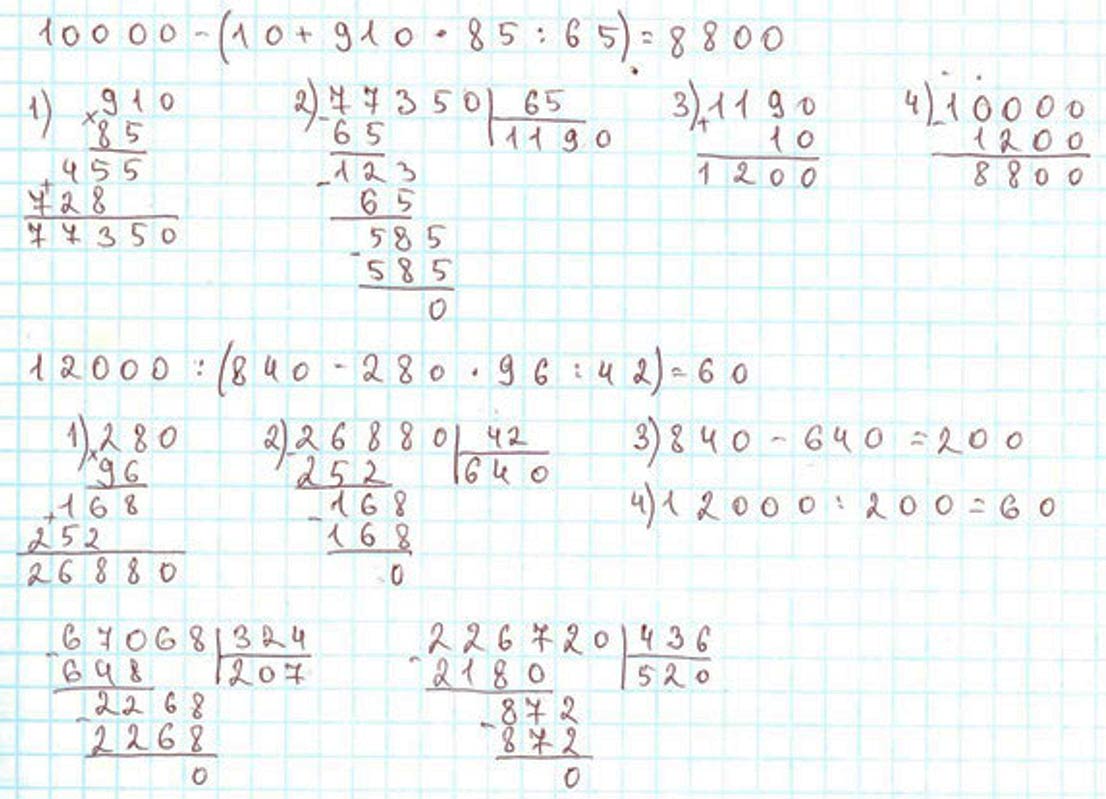 10000 - (10 + 910 · 85 : 65) = 8800
1) 910 2) 77350 | 65 3) 1190 4) 10000
× 85 - 65 | 1190 + 10 - 1200
+ 455 - 123 1200 8800
728 65
77350 - 585
585
0
12000 : (840 - 280 · 96 : 42) = 60
1) 280 2) 26880 | 42 3) 840 - 640 = 200
× 96 - 252 | 640
+ 168 - 168 4) 12000 : 200 = 60
252 168
26880 0
- 67068 | 324 - 226720 | 436
648 | 207 2180 | 520
- 2268 - 872
2268 872
0 0